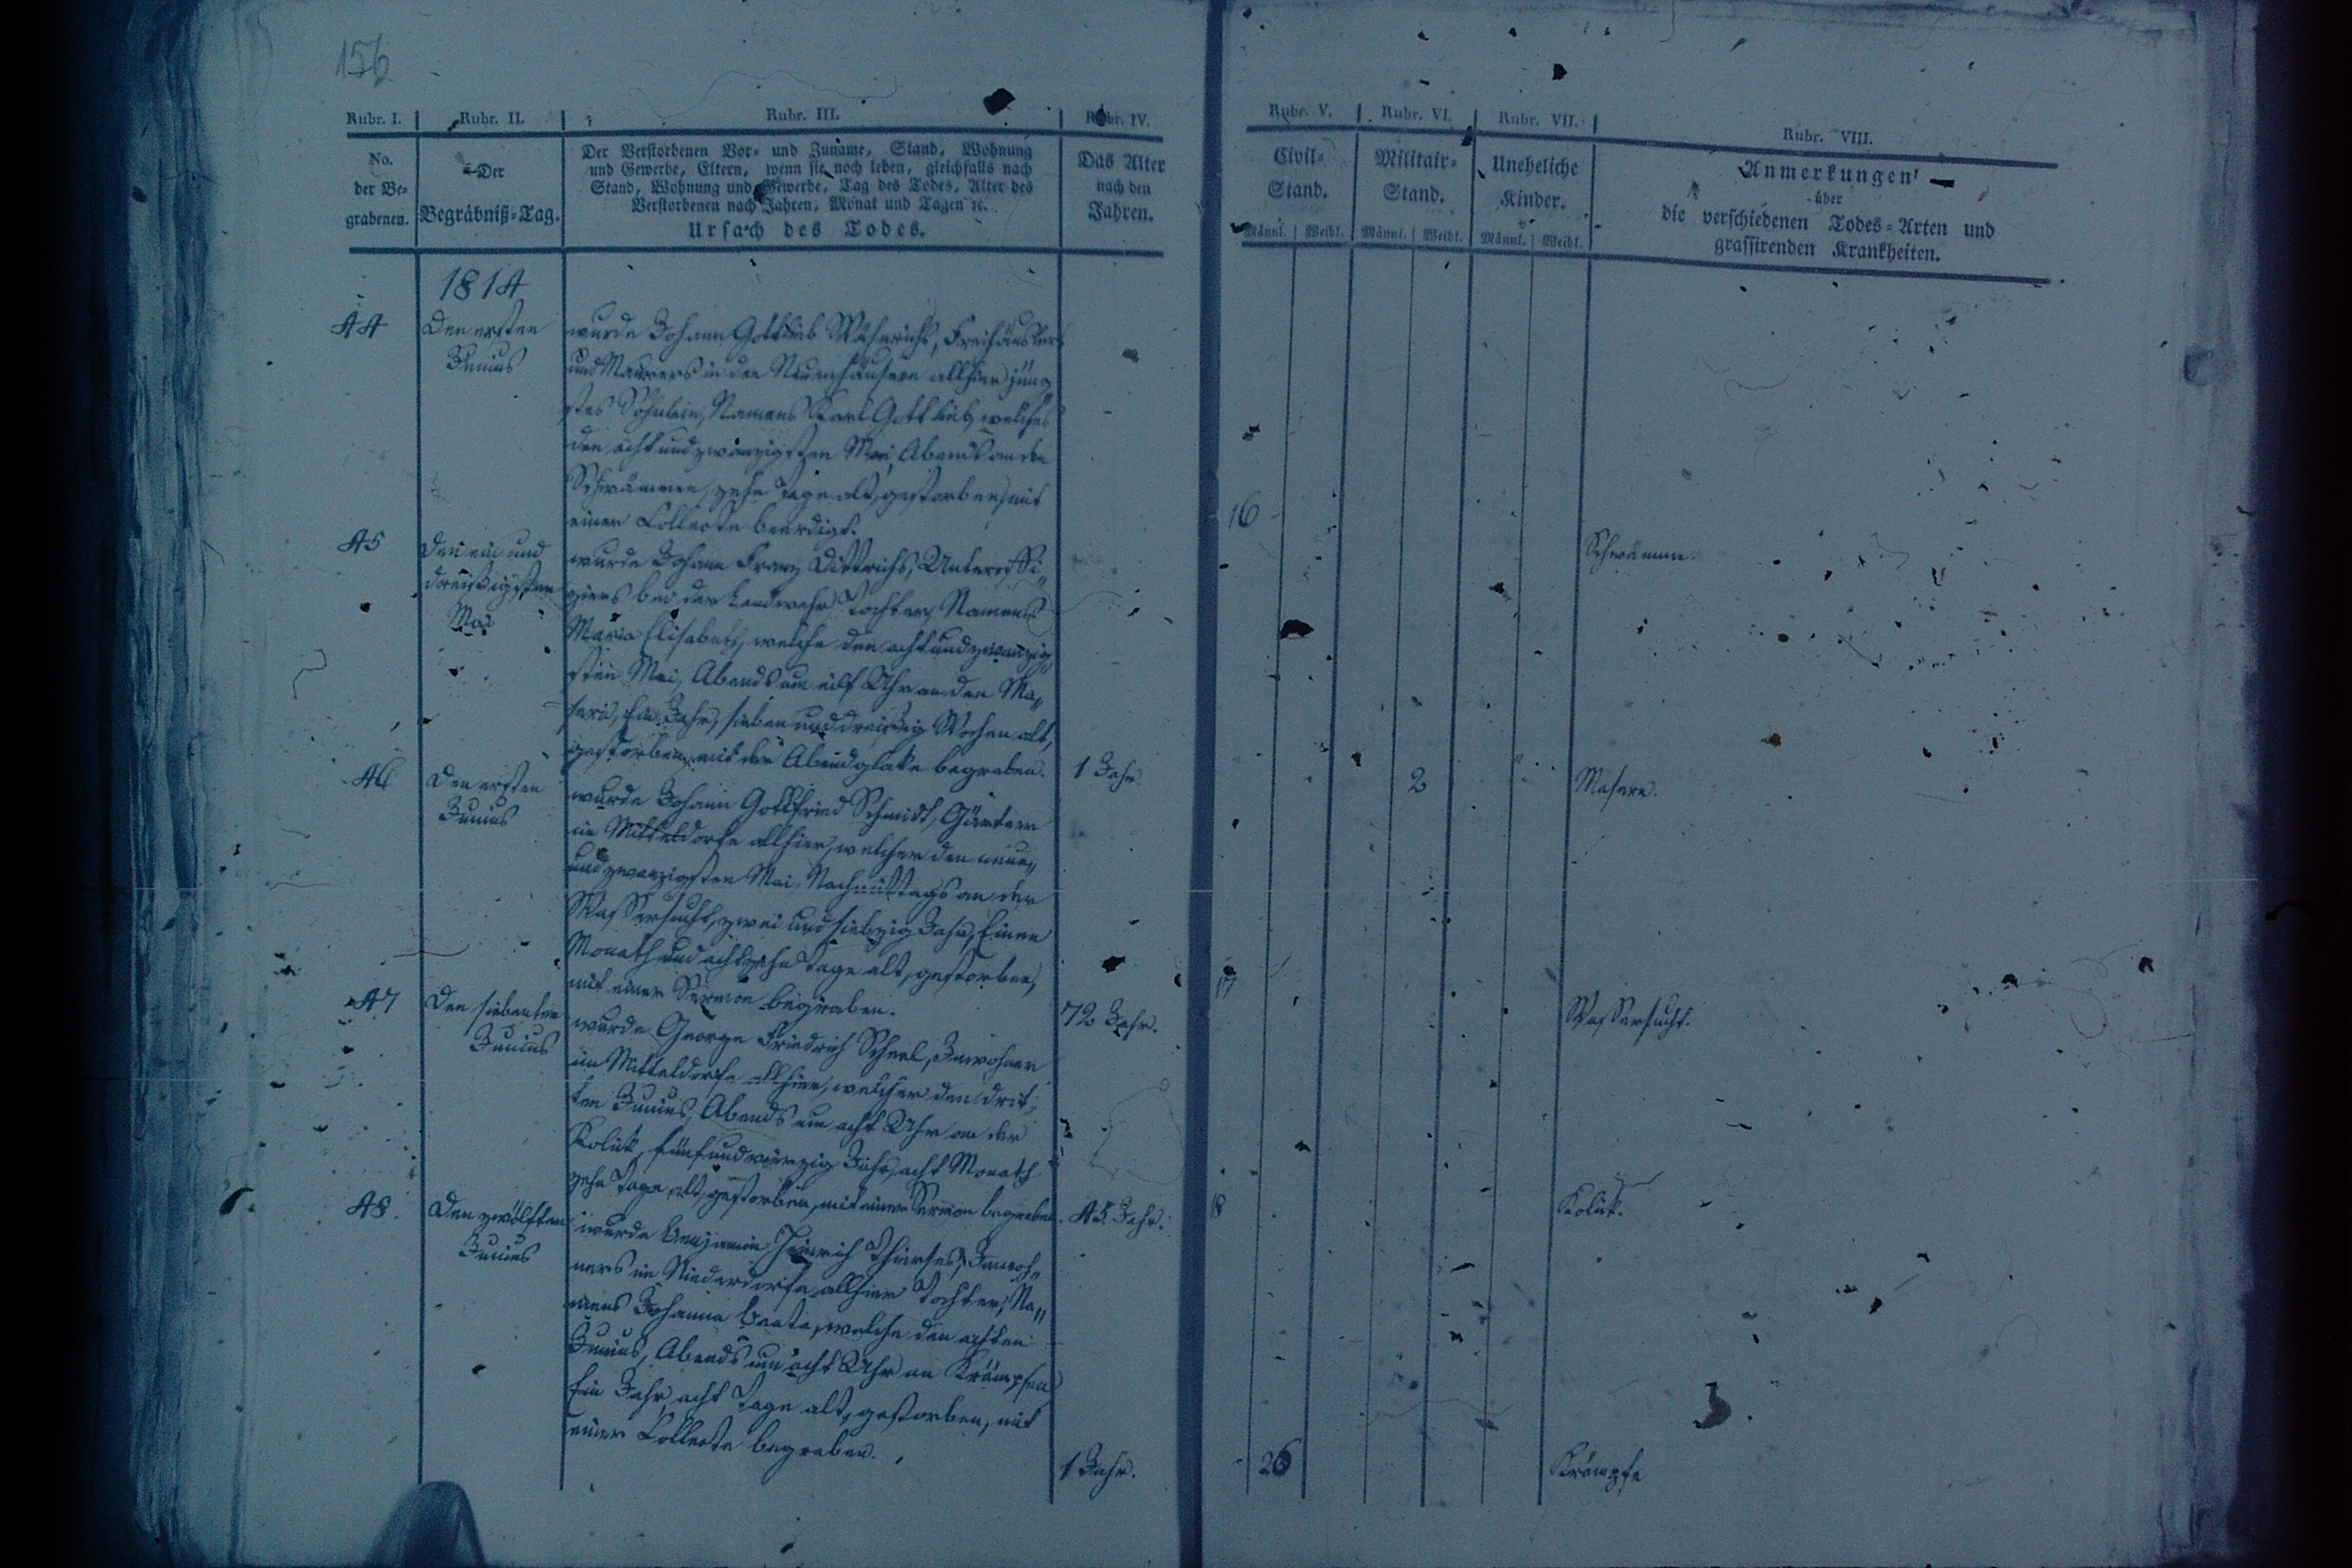 156
Rubr. I. Rubr. II. Rubr. III. Rubr. IV. Rubr. V. Rubr. VI. Rubr. VII. Rubr. VIII.
No.
der Be-
grabenen.
Der
Begräbniß-Tag.
Der Verstorbenen Vor- und Zuname, Stand, Wohnung
und Gewerbe, Eltern, wenn sie noch leben, gleichfalls nach
Stand, Wohnung und Gewerbe, Tag des Todes, Alter des
Verstorbenen nach Jahren, Monat und Tagen ꝛc.
Ursach des Todes.
Das Alter
nach den
Jahren.
Civil-
Stand.
Männl. Weibl.
Militair-
Stand.
Männl. Weibl.
Uneheliche
Kinder.
Männl. Weibl.
Anmerkungen
über
die verschiedenen Todes-Arten und
grassirenden Krankheiten.
1814
44
Den ersten
Junius
wurde Johann Gottlieb Freihäuslers
und Maurers in den Neuenhäusern allhier jüng
stes Söhnlein, Namens Karl Gottlieb, welches
den acht und zwanzigsten Mai, Abends an den
Schwämmen, zehn Tage alt, gestorben, mit
einer Collecte beerdigt.
16
Schwämme.
45
Den ein und
dreißigsten
Mai
wurde Johann Franz Dittrichs, Unteroffi„
ziers bei der Landwehr Tochter, Namens
Maria Elisabeth, welche den acht und zwanzig„
sten Mai, Abends um eilf Uhr an den Ma„
sern, Ein Jahr, sieben und dreißig Wochen alt,
gestorben, mit der Abendglocke begraben.
1 Jahr.
2
Masern.
46
Den ersten
Junius
wurde Johann Gottfried Schmidt, Gärtner
im Mitteldorfe allhier, welcher den neun„
und zwanzigsten Mai, Nachmittags an der
Wassersucht, zwei und siebzig Jahr, Einen
Monath und achtzehn Tage alt, gestorben,
mit einer Sermon begraben.
72 Jahr.
17
Wassersucht.
47
Den siebenten
Junius
wurde George Friedrich Scheel, Inwohner
im Mitteldorfe allhier, welcher den drit„
ten Junius, Abends um acht Uhr an der
Kolik, fünf und vierzig Jahr, acht Monath
zehn Tage alt, gestorben, mit einer Sermon begraben.
45 Jahr.
18
Kolik.
48
Den zwölften
Junius
wurde Benjamin Heinrich Inwoh„
ners im Niederdorfe allhier Tochter, Na„
mens Johanna Beata, welche den achten
Junius, Abends um acht Uhr an Krämpfen
Ein Jahr, acht Tage alt, gestorben, mit
einer Collecte begraben.
1 Jahr.
26
Krämpfe